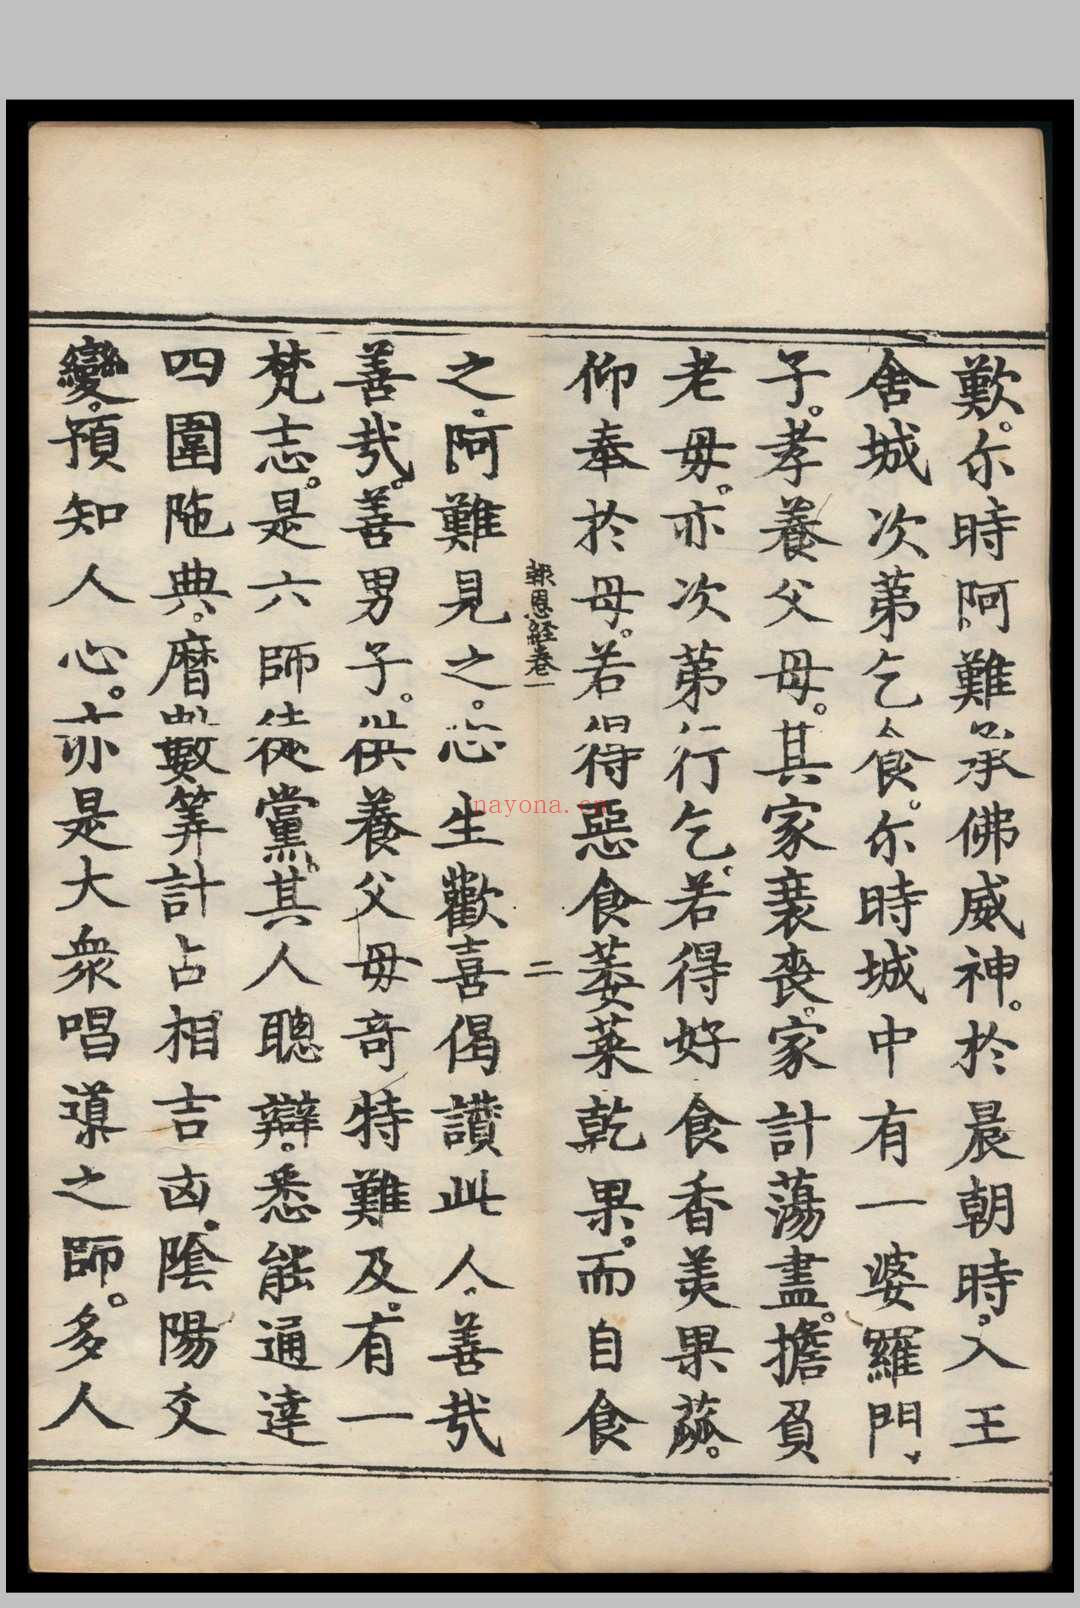 歎。尒時阿難承佛威神。於晨朝時。入王
舍城次第乞食。尒時城中有一婆羅門、
子。孝養父母。其家衰喪。家計蕩盡。擔負
老母。亦次第行乞。若得好食香美果蓏。
仰奉於母。若得惡食萎菜乾果。而自食
報恩経卷一
二
之。阿難見之。心生歡喜偈讃此人、善哉
善哉。善男子。供養父母奇特難及。有一
梵志。是六師徒黨。其人聰辯。悉能通達
四圍陁典。曆數筭計占相吉凶。陰陽爻
變。預知人心。亦是大衆唱導之師。多人
nayona.cn